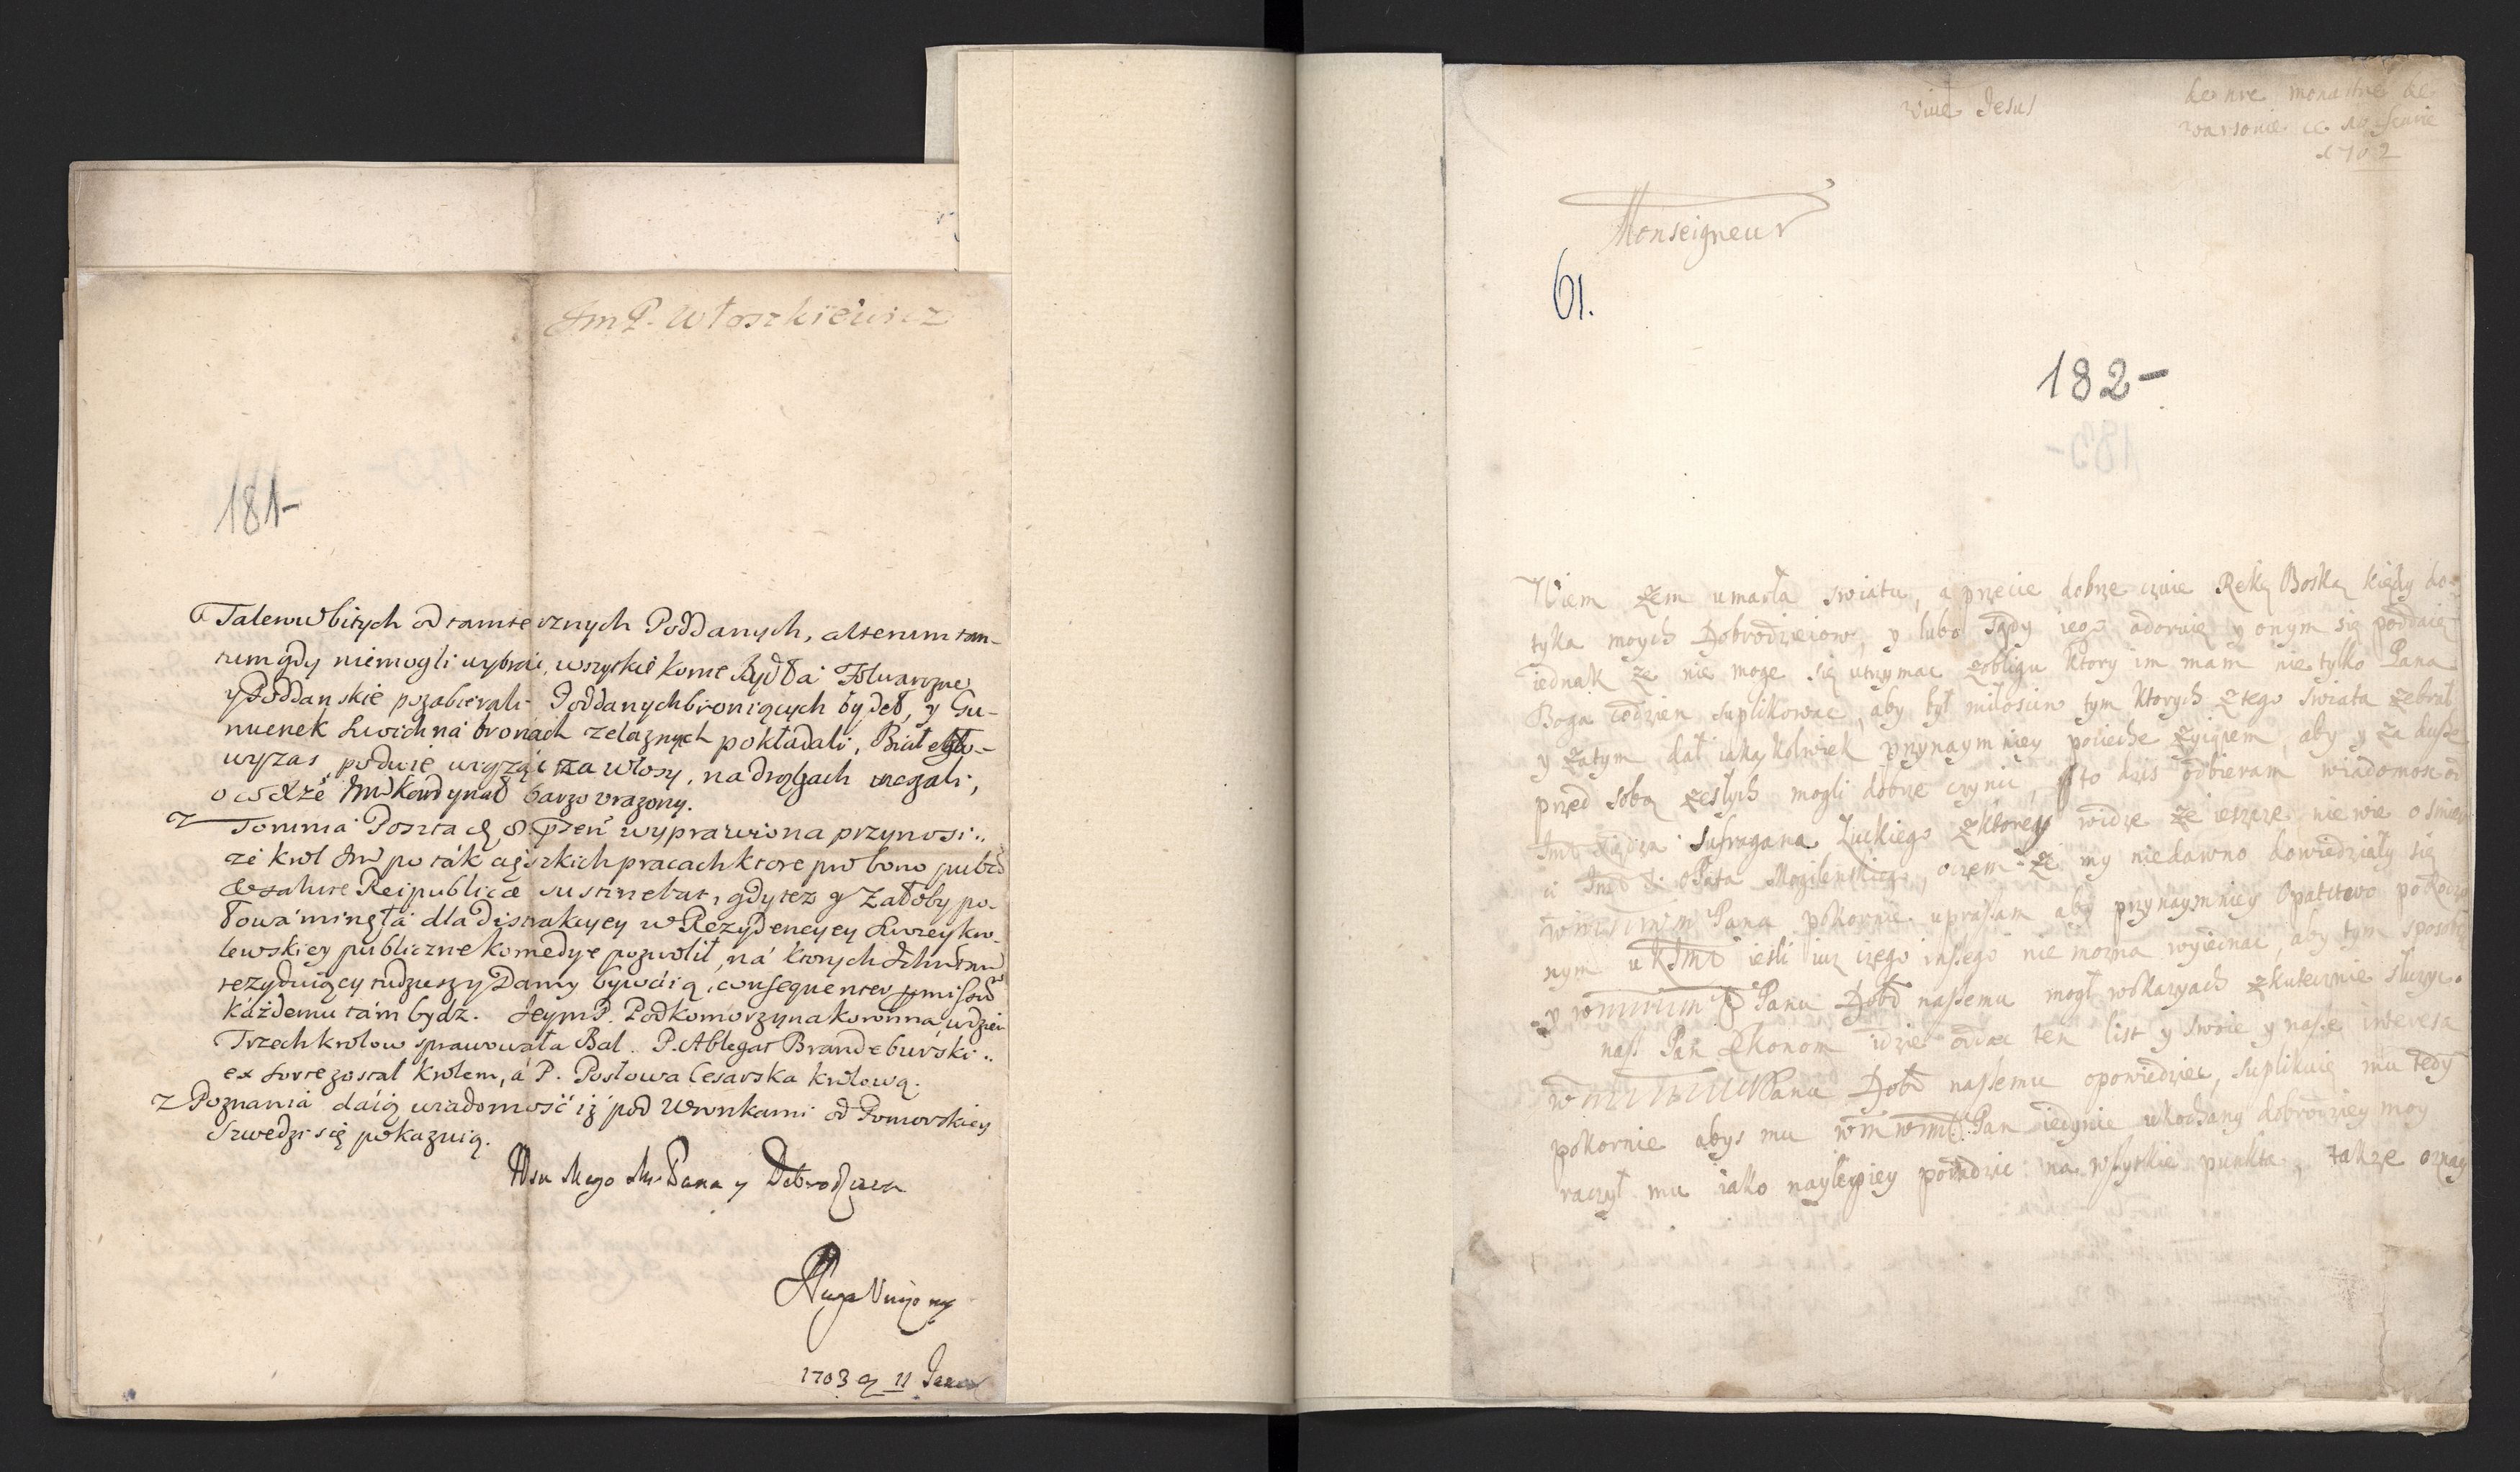 Jm P. Włoszkiewicz
181-
6 Talerow bitych od tamtecznych Poddanych, alterum tan-
tum gdy niemogli wybrać, wszystkie konie Bydła Folwarczne
y Poddanskie pozabierali Poddanych broniących bydeł, y Gu-
mienek Swoich na bronach zelaznych pokładali, Białegło-
wy zas po dwie wiązać za włosy, na drągach
o co xże Jm Kardynał barzo urazony.
Z Torunia Poszta wyprawiona przynosi
ze krol Jm po ták ciężkich pracach ktore pro bono publco
& salute Reipublicæ sustinebat, gdy tez y Załoby po-
łowá minęłá dla Distrakcyey w Rezydencyey Swoiey kro-
lewskiey publiczne komedye pozwolił, ná ktorych Ichm
rezyduiący tudzuszy Damy bywáią, consequenter
káżdemu tám bydz. Jeym P. Podkomorzyna koronna, w dzien
Trzech krolow sprawowała Bal. P. Ablegat Brandeburski
ex sorte został krolem, á P. Posłowa Cesarska krolową.
Z Poznania dáią wiadomość iż pod Wronkami od Pomorskiey
Szwedzi się pokazuią.
Wm Mego Mo Pana y Dobrodzieia
Sługa Niższy
1703 d 11
Vive Jesus
de nre monastre de
warsovie ce 10
1702
Monseigneur
61.
182-
Wiem żem umarła swiatu, a przecie dobrze czuie Rękę Boską kiedy do-
tyka moych Dobrodzieiow, y lubo sądy iego adoruię y onym się poddaię
iednak że nie moge się utrzymac z obligu ktory im mam nie tylko Pana
Boga codzien suplikowac, aby był miłosciw tym ktorych z tego swiata zebrał
y zatym dał iakąkolwiek przynaymniey pociechę żyiącem, aby y za dusze
przed sobą zesłych mogli dobrze czynic, to dzis odbieram wiadomosc od
Jmc Xiędza Sufragana Łuckiego z ktorego widzę że ieszcze nie wie o smier
ci Jmc X. Opata Mogilenskiego, oczem że my niedawno dowiedziały się
Pana pokornie upraszam aby przynaymniey Opatctwo
nym u K Jmci iesli iuz czego inszego nie mozna wyiednac, aby tym sposobem
y Panu Dobr naszemu mogł w okazyach skutecznie słuzyc.
nasz Pan Ekonom idzie oddac ten list y swoie y nasze interesa
Panu Dobr naszemu opowiedziec, suplikuię mu tedy
pokornie abys mu Pan iedynie ukochany dobrodziey moy
raczył mu iako naylepiey poradzic na wszystkie punkta, takze oznay